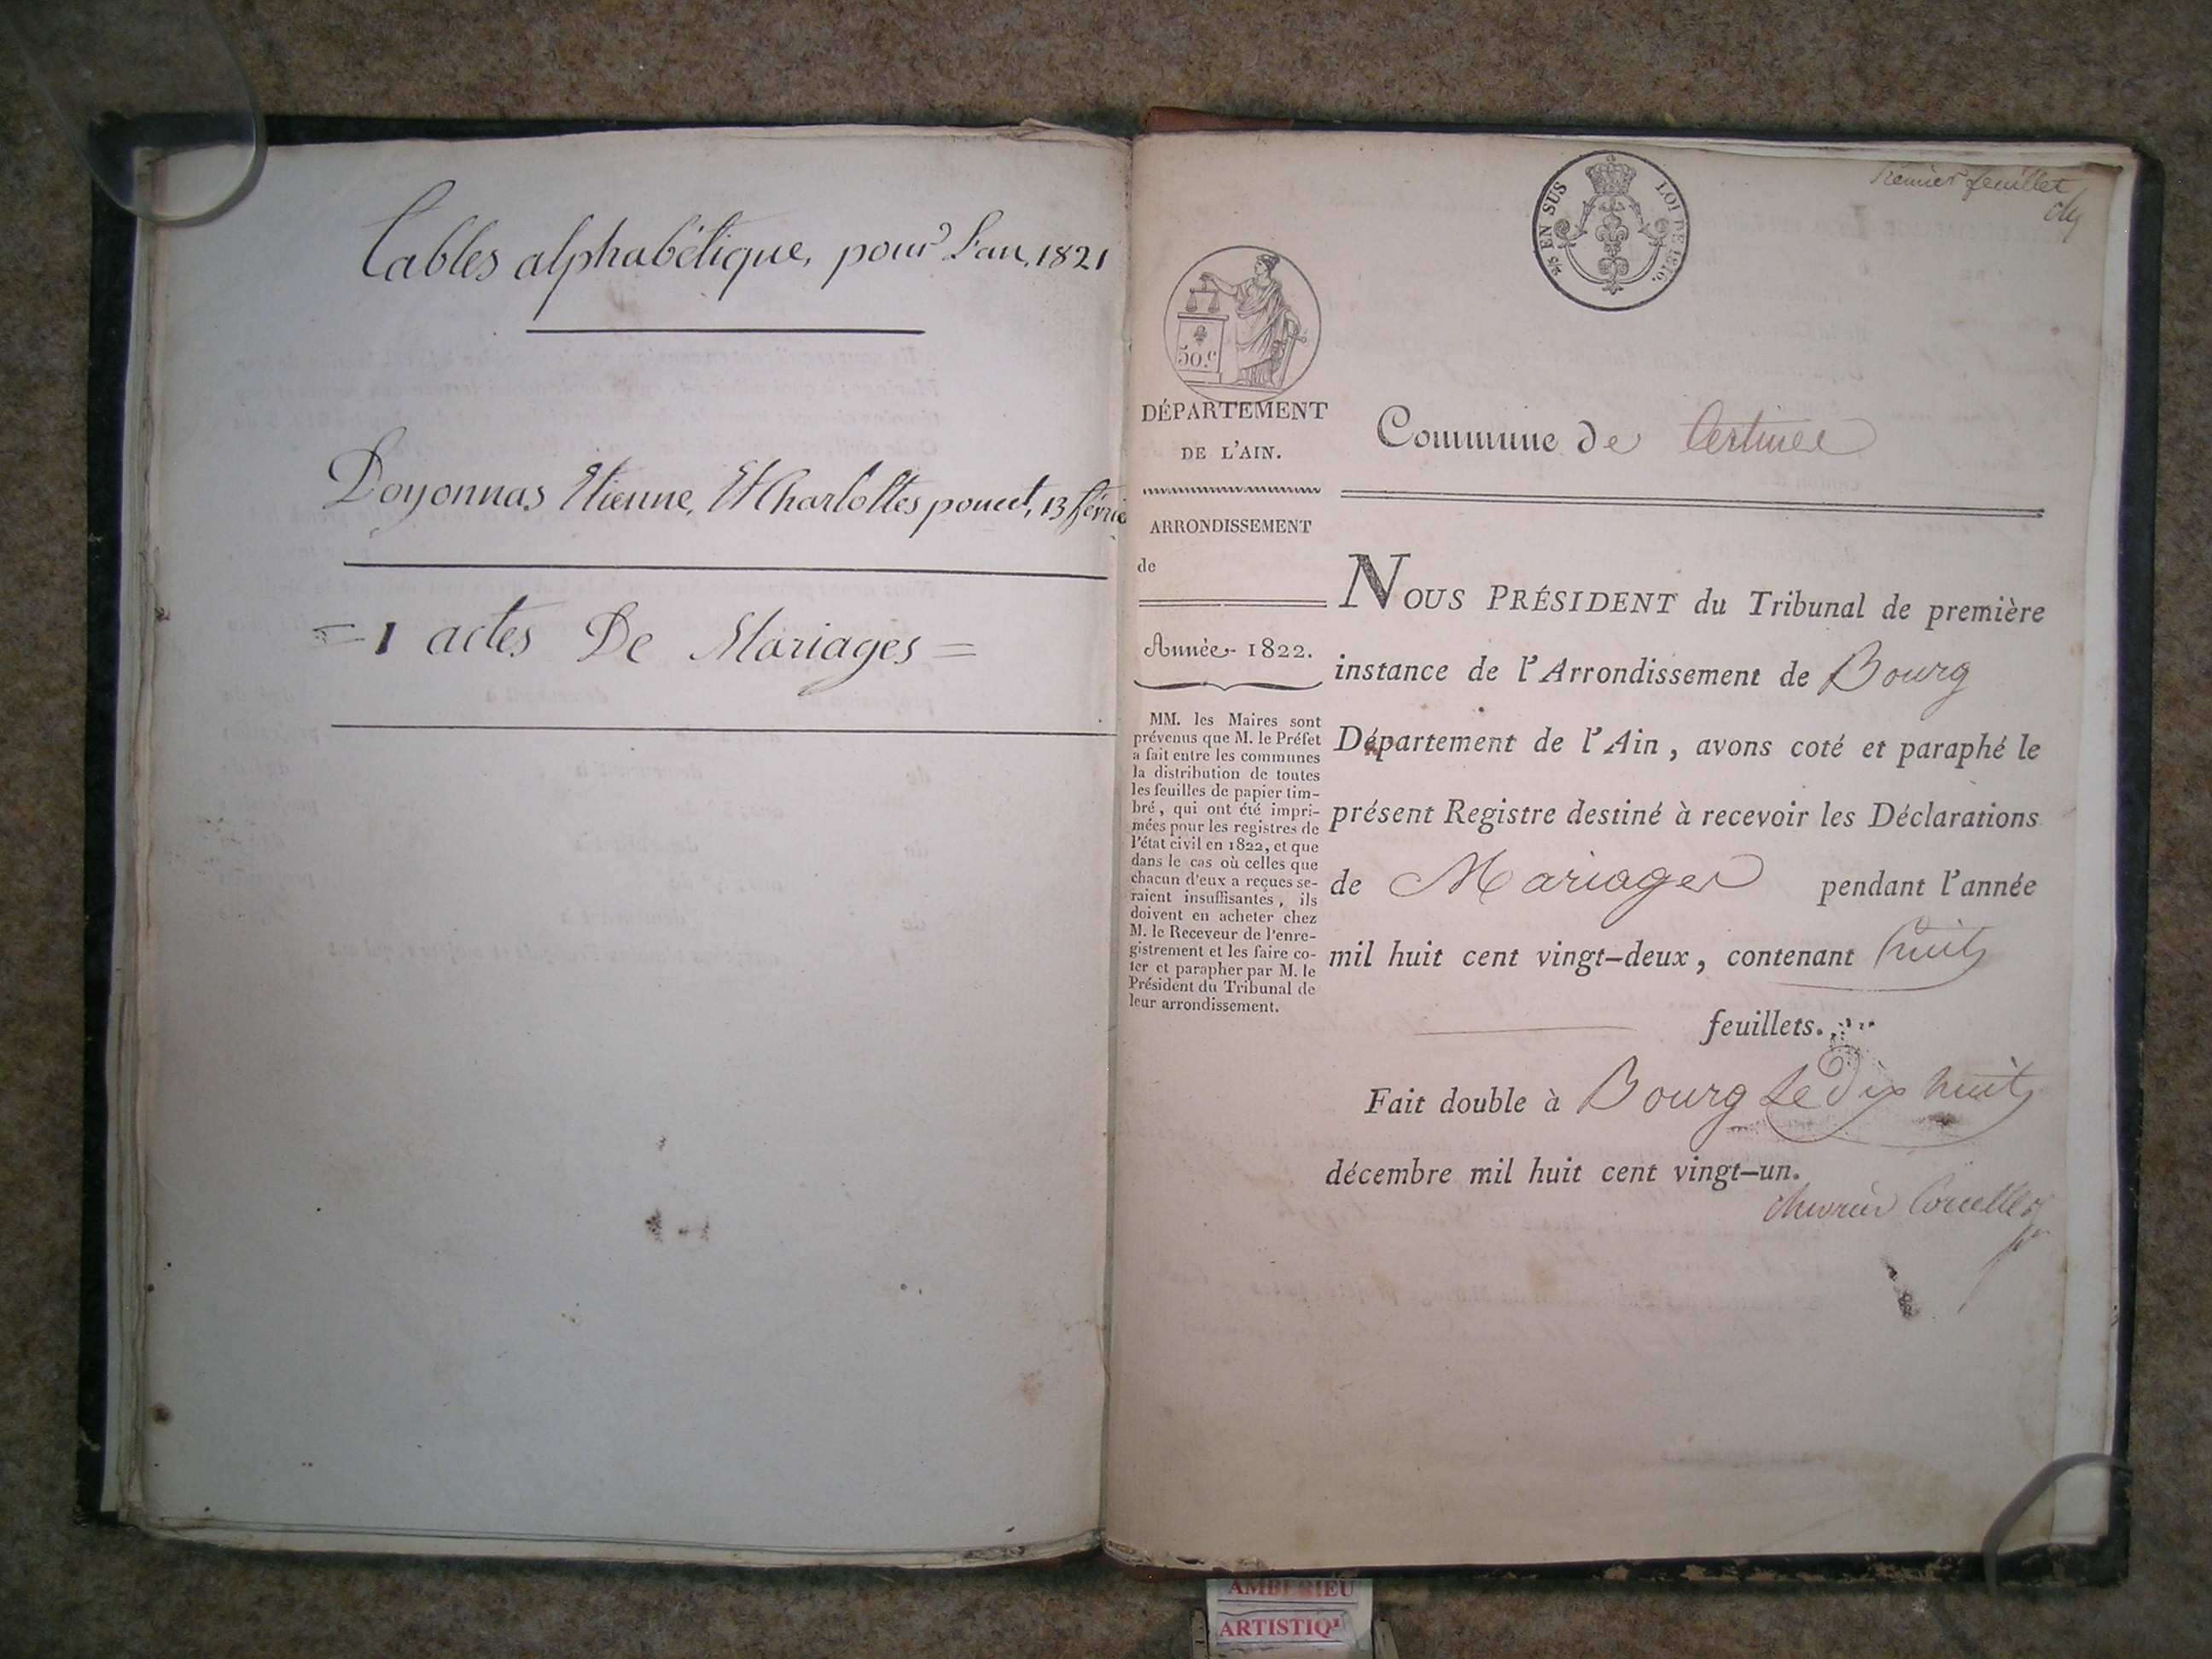 Tables alphabétique, pour L'an, 1821
Doyonnas Etienne, Et Charlottes poncet, 13 févrie
= 1 actes De Mariages =
Premier feuillet
2/5 EN SUS LOI DE 1816.
50.c
DÉPARTEMENT
DE L'AIN.
ARRONDISSEMENT
de
Année 1822.
MM. les Maires sont
prévenus que M. le Préfet
a fait entre les communes
la distribution de toutes
les feuilles de papier tim-
bré, qui ont été impri-
mées pour les registres de
l'état civil en 1822, et que
dans le cas où celles que
chacun d'eux a reçues se-
raient insuffisantes, ils
doivent en acheter chez
M. le Receveur de l'enre-
gistrement et les faire co-
ter et parapher par M. le
Président du Tribunal de
leur arrondissement.
Commune de Certines
NOUS PRÉSIDENT du Tribunal de première
instance de l'Arrondissement de Bourg
Département de l'Ain, avons coté et paraphé le
présent Registre destiné à recevoir les Déclarations
de Mariages pendant l'année
mil huit cent vingt-deux, contenant huit
feuillets.
Fait double à Bourg Le dix huit
décembre mil huit cent vingt-un.
AMBERIEU
ARTISTIQ